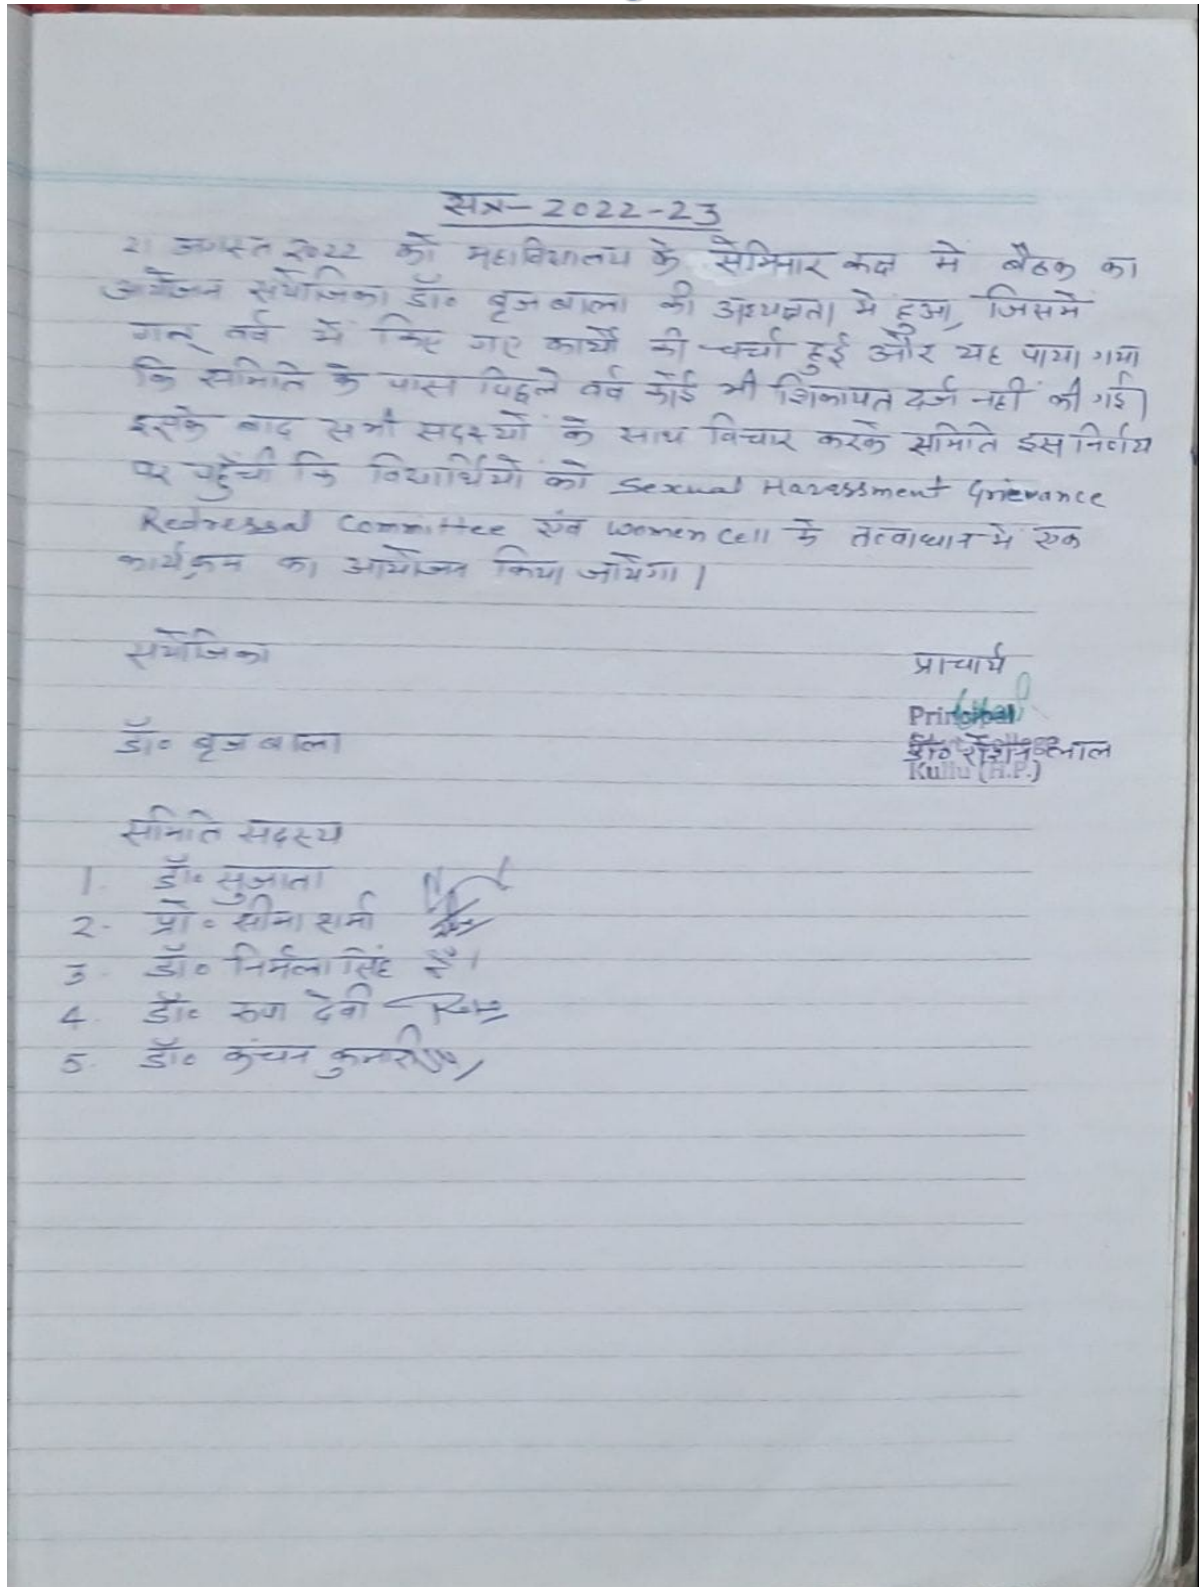 सत्र- 2022-23
21 अगस्त 2022 को महाविद्यालय के सेमिनार कक्ष में बैठक का
आयोजन संयोजिका डॉ० बृज बाला की अध्यक्षता में हुआ, जिसमें
गत् वर्ष में किए गए कार्यों की चर्चा हुई और यह पाया गया
कि समिति के पास पिछले वर्ष कोई भी शिकायत दर्ज नहीं की गई।
इसके बाद सभी सदस्यों के साथ विचार करके समिति इस निर्णय
पर पहुँची कि विद्यार्थियों को Sexual Harassment Grievance
Redressal Committee एवं Women Cell के तत्वाधान में एक
कार्यक्रम का आयोजन किया जायेगा।
संयोजिका
प्राचार्य
Principal
डॉ० बृज बाला
डॉ० रोशन लाल
Kullu (H.P.)
समिति सदस्य
1. डॉ० सुजाता
2. प्रो० सीमा शर्मा
3. डॉ० निर्मला सिंह
4. डॉ० रूपा देवी
5. डॉ० कंचन कुमारी